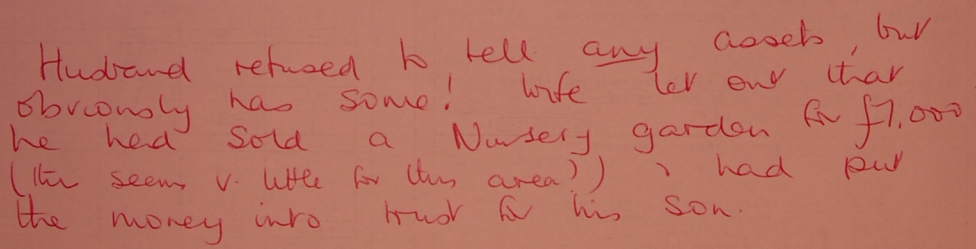 Husband refused to tell any assets, but
obviously has some! Wife let out that
he had sold a Nursery garden for £7,000
(this seems v. little for this area?) & had put
the money into trust for his son.